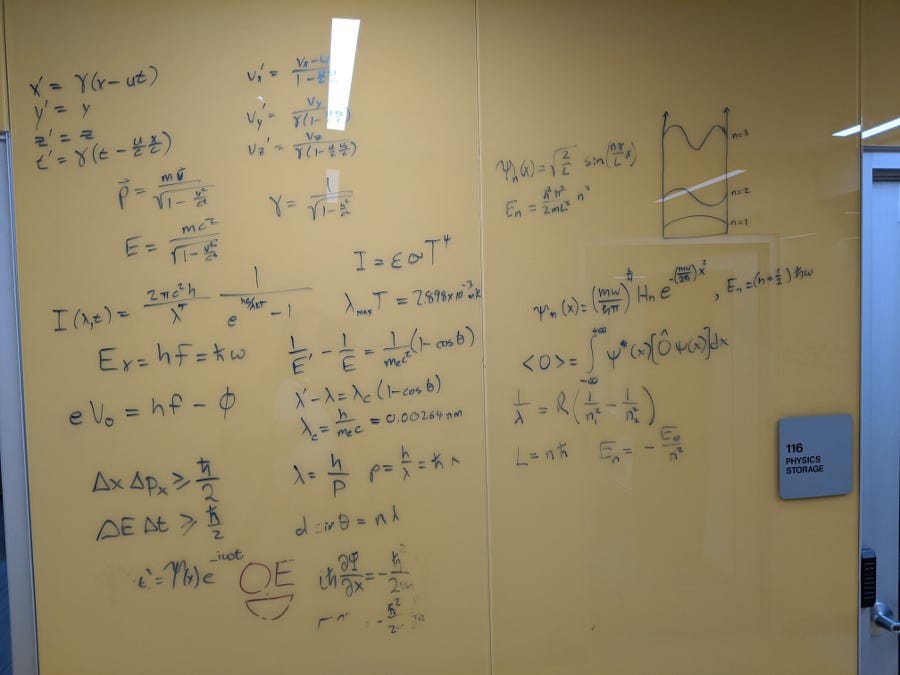 x' = γ(x − ut)
y' = y
z' = z
t' = γ(t − u/c x/c)
vx' = vx − u / 1 −
vy' = vy / γ(1 −
vz' = vz / γ(1 −
p⃗ = mu⃗ / √(1 − u²/c²)
γ = 1 / √(1 − u²/c²)
E = mc² / √(1 − u²/c²)
I = εσT⁴
I(λ,t) = 2πc²h / λ⁵ 1 / e^(hc/λkT) − 1
λmax T = 2.898x10⁻³ mK
Eγ = hf = ħω
1/E' − 1/E = 1/mec² (1 − cosθ)
eV₀ = hf − ϕ
λ' − λ = λc (1 − cosθ)
λc = h/mec = 0.00264 nm
Δx Δpx ⩾ ħ/2
λ = h/p
p = h/λ = ħ
ΔE Δt ⩾ ħ/2
d sinθ = nλ
ψ(x)e^(−iωt)
OE
iħ ∂Ψ/∂x = − ħ²/2m
− ħ²/2
ψn(x) = √(2/L) sin(nπ/L x)
En = ħ²π²/2mL² n²
n=3
n=2
n=1
ψn(x) = (mω/ħπ)^¼ Hn e^(−(mω/2ħ)x²) , En = (n+½)ħω
<O> = ∫−∞^+∞ ψ*(x)[Ôψ(x)]dx
1/λ = R(1/n₁² − 1/n₂²)
L = nħ En = − E₀/n²
116
PHYSICS
STORAGE